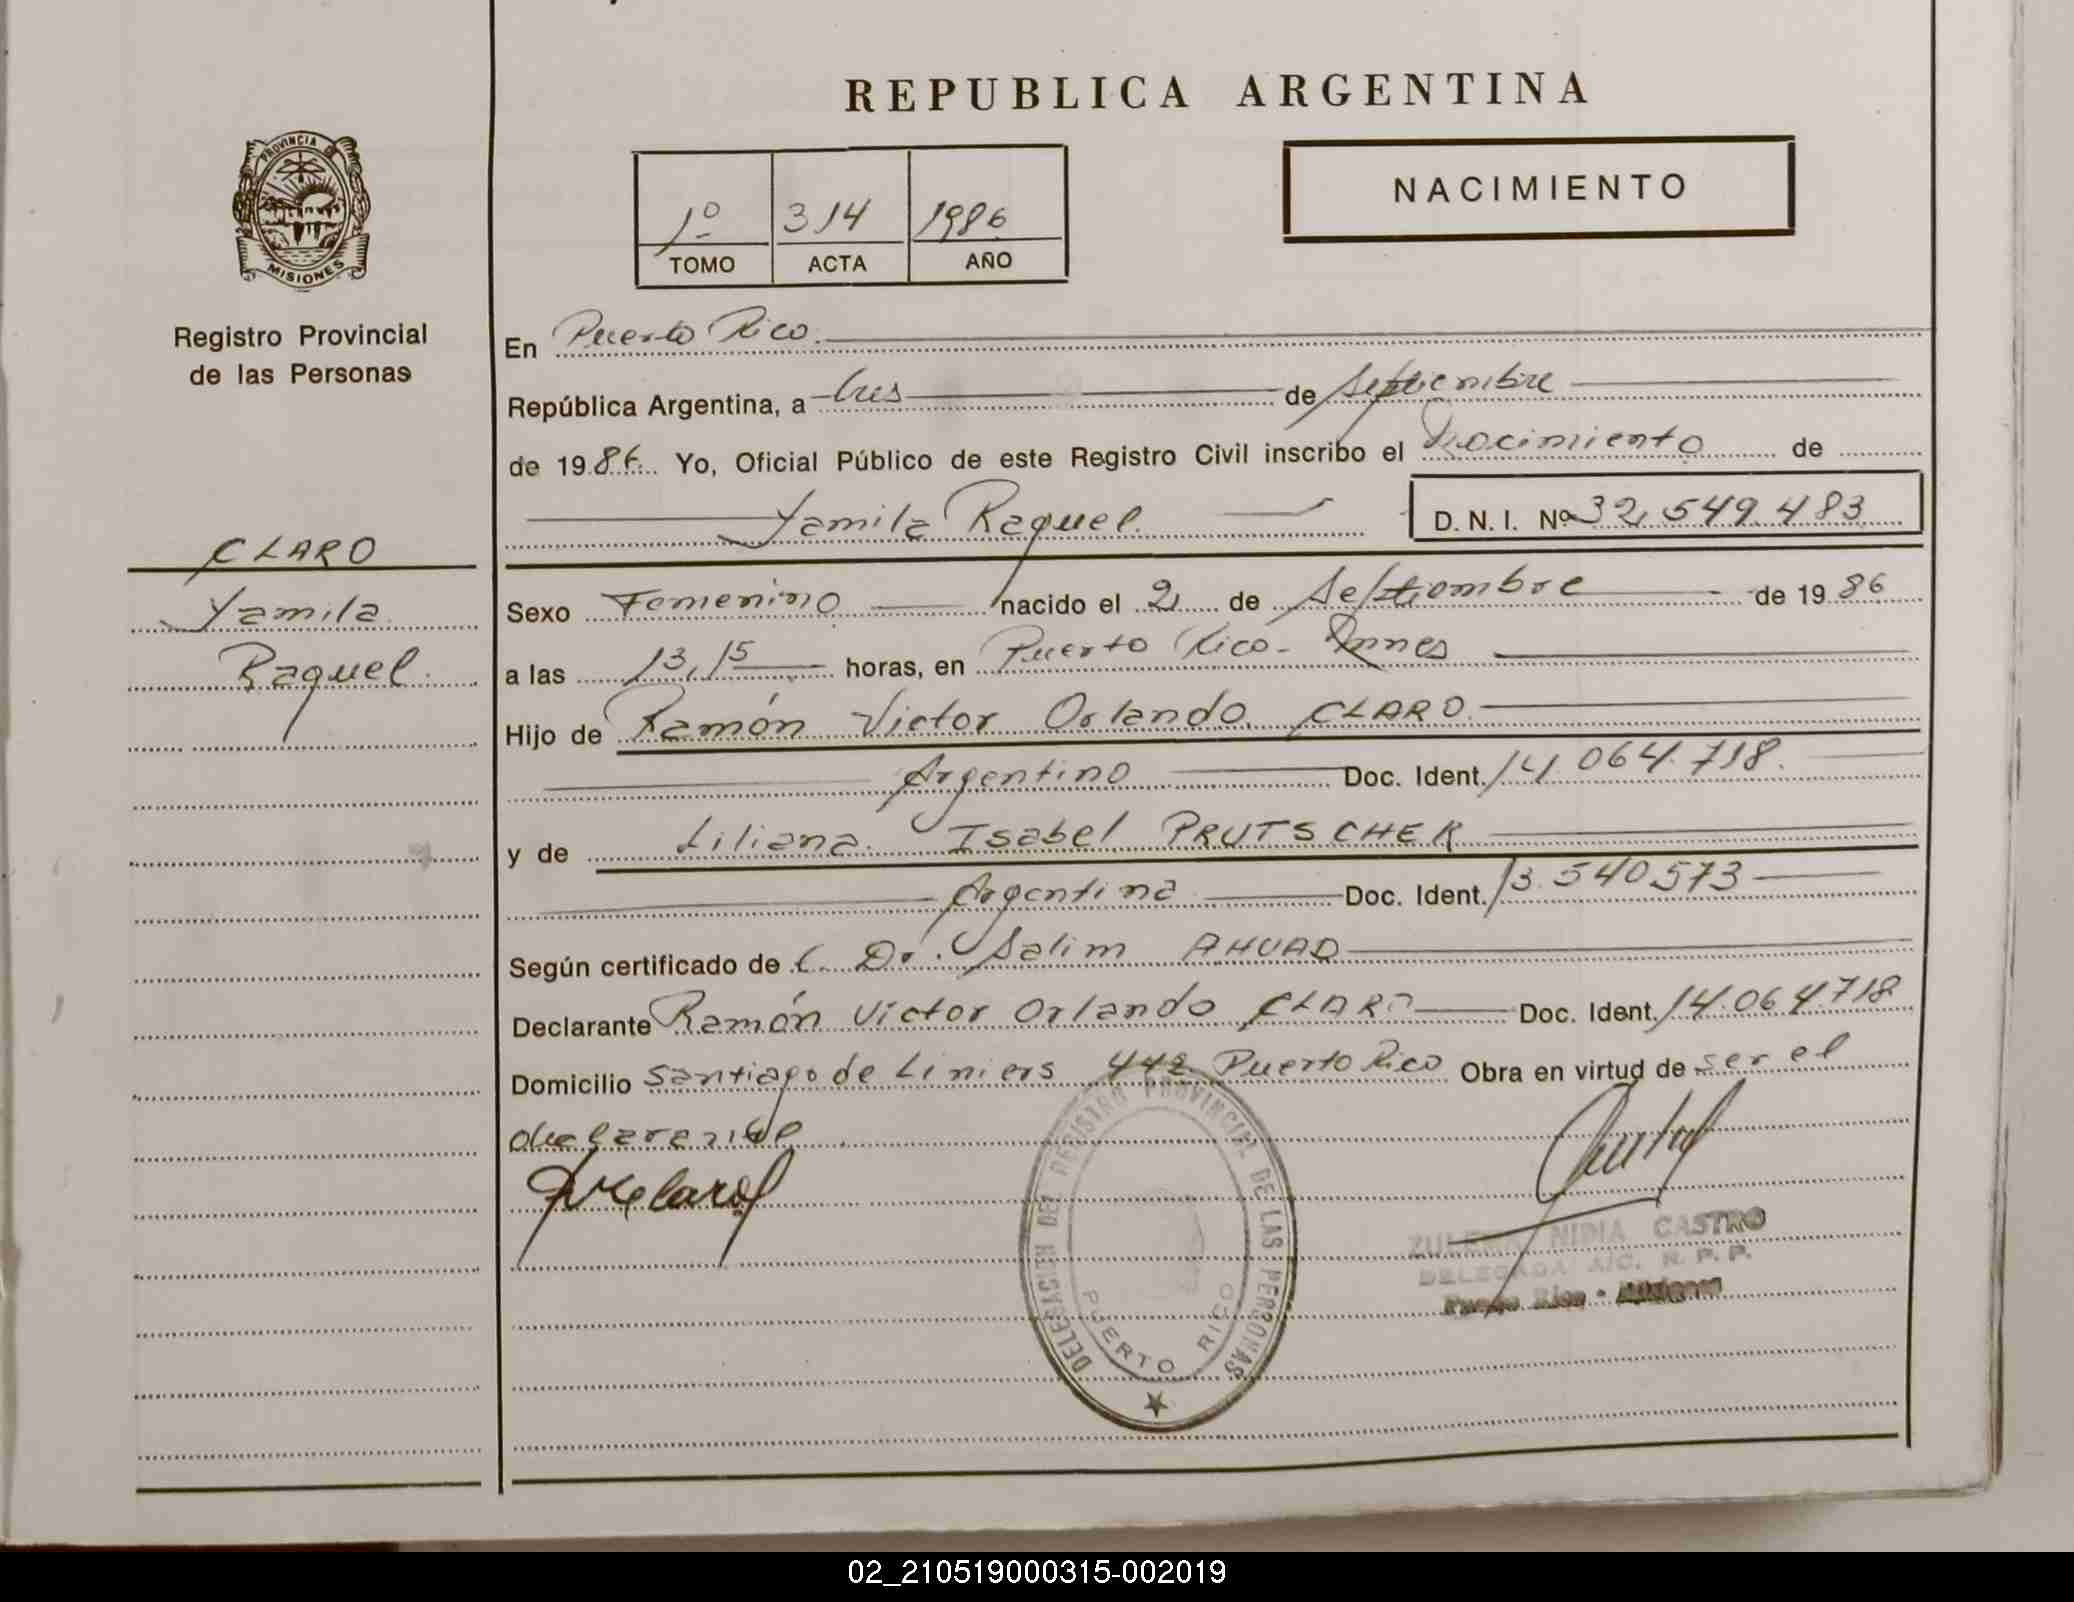 REPUBLICA ARGENTINA
PROVINCIA DE
MISIONES
Registro Provincial
de las Personas
1º 314 1986
TOMO ACTA AÑO
NACIMIENTO
CLARO
Yamila
Raquel.
En Puerto Rico.
República Argentina, a tres de Septiembre
de 1986. Yo, Oficial Público de este Registro Civil inscribo el Nacimiento de
Yamila Raquel. D. N. I. Nº 32.549.483
Sexo Femenino nacido el 2 de Septiembre de 1986
a las 13,15 horas, en Puerto Rico -
Hijo de Ramón Victor Orlando CLARO.
Argentino Doc. Ident. 14.064.718.
y de Liliana Isabel PRUTSCHER
Argentina Doc. Ident. 13.540.573
Según certificado de Dr. Salim AHUAD
Declarante Ramón Victor Orlando CLARO Doc. Ident. 14.064.718
Domicilio Santiago de Liniers 442 Puerto Rico Obra en virtud de ser el
declarante.
DELEGACION DEL REGISTRO PROVINCIAL DE LAS PERSONAS
PUERTO RICO
ZULEMA NIDIA CASTRO
DELEGADA A/C. R. P. P.
Puerto Rico - Misiones
02_210519000315-002019